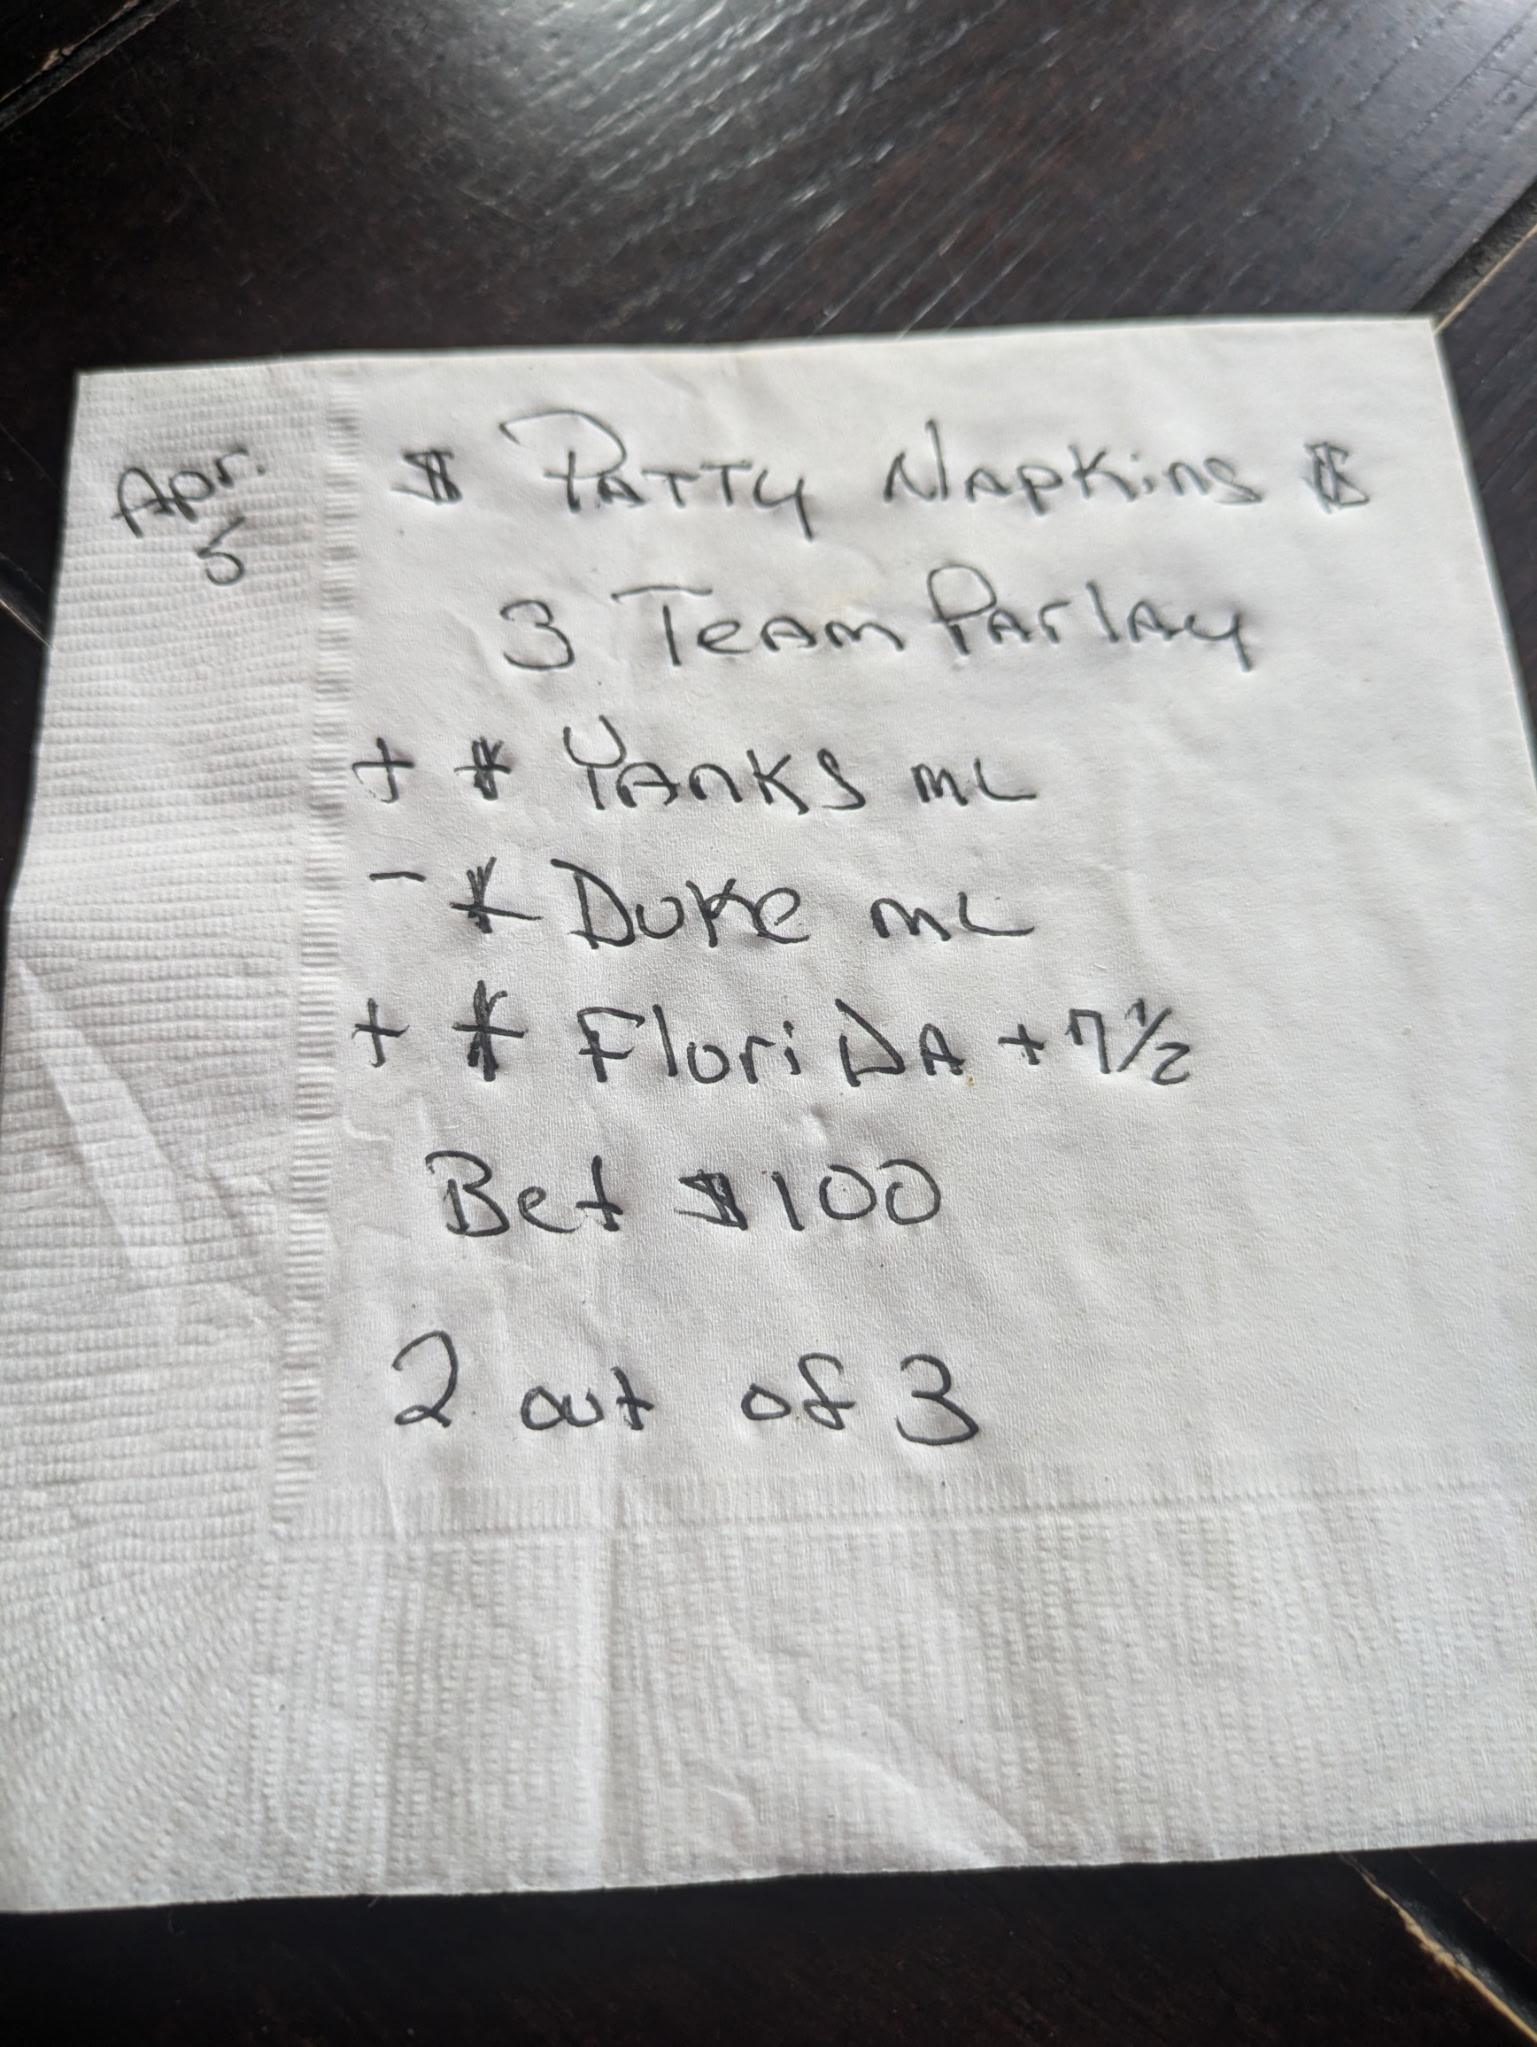 Apr.
5
$ Patty Napkins $
3 Team Parlay
+ * Yanks ML
- * Duke ML
+ * Florida +7 1/2
Bet $100
2 out of 3